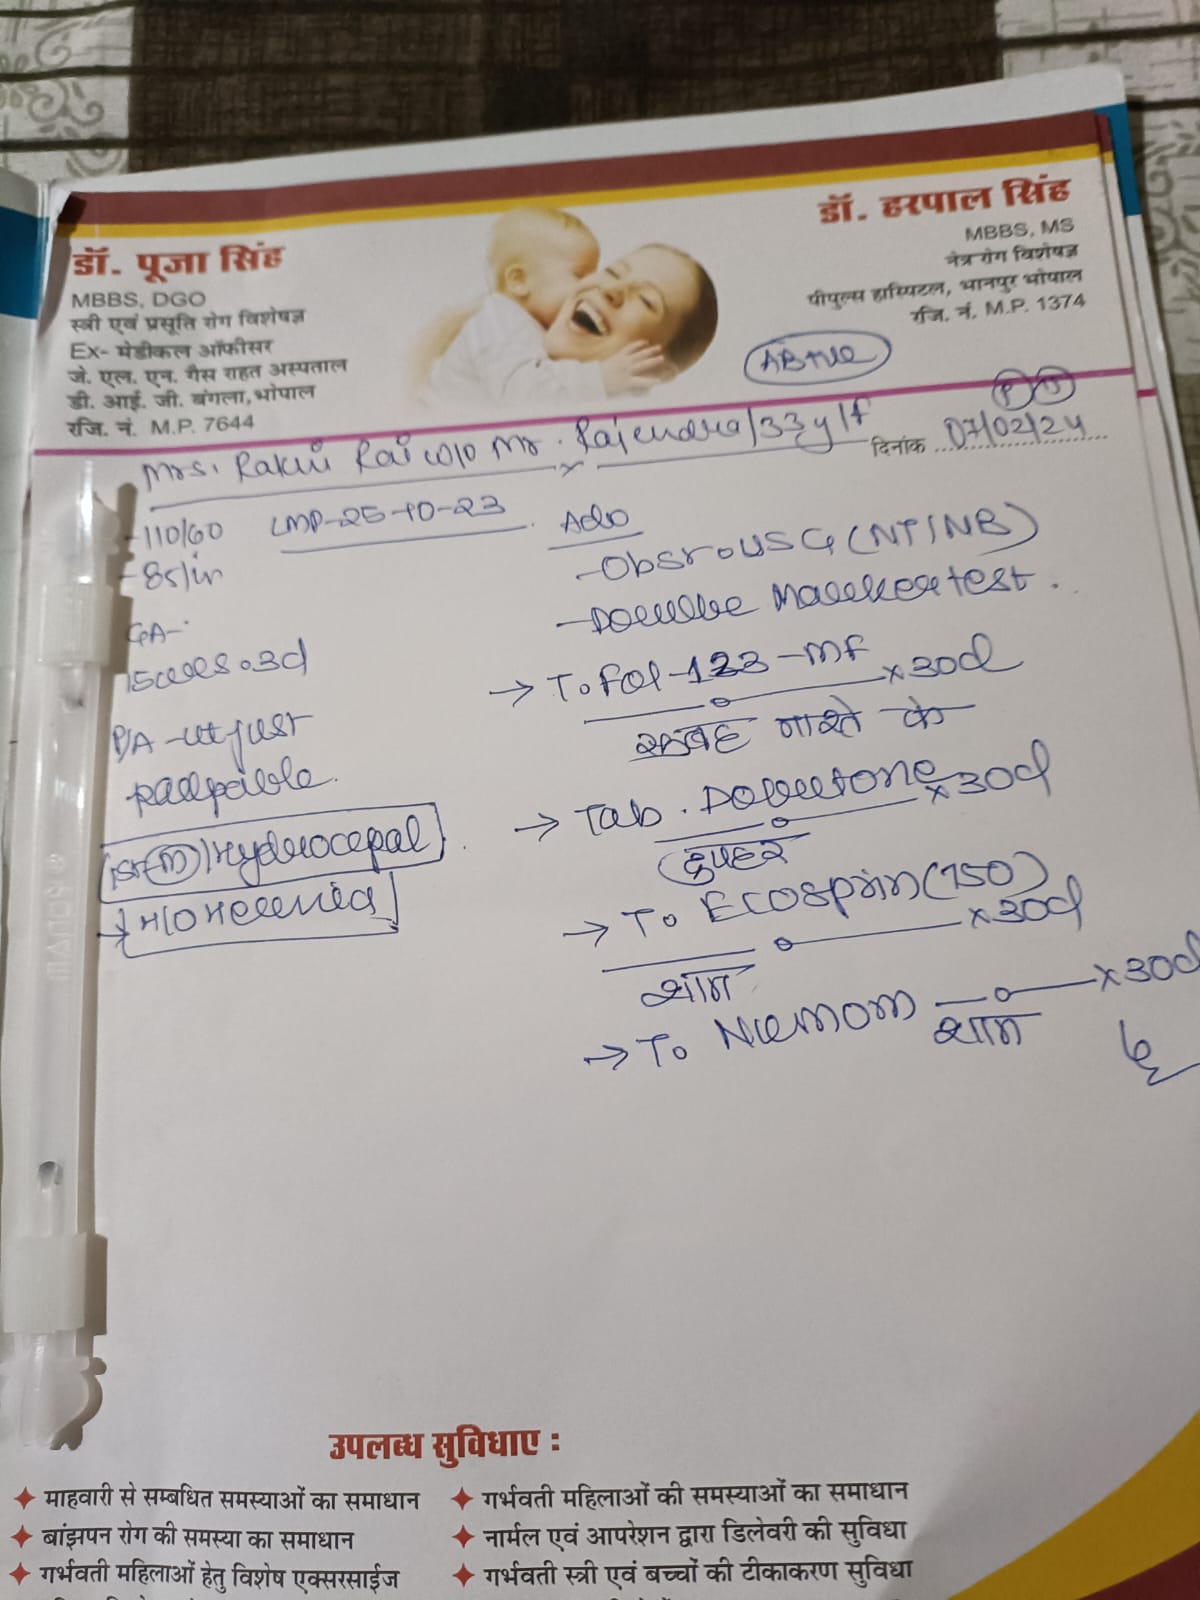 डॉ. पूजा सिंह
MBBS, DGO
स्त्री एवं प्रसूति रोग विशेषज्ञ
Ex- मेडीकल ऑफीसर
जे. एल. एन. गैस राहत अस्पताल
डी. आई. जी. बंगला, भोपाल
रजि. नं. M.P. 7644
डॉ. हरपाल सिंह
MBBS, MS
नेत्र रोग विशेषज्ञ
पीपुल्स हास्पिटल, भानपुर भोपाल
रजि. नं. M.P. 1374
AB+ve
Mrs. Rakhi Rai w/o Mr. Rajendra/33y/f
दिनांक 07/02/24
-110/60
LMP-25-10-23
- 85/
GA-
15 3d
P/A - ut just
palpable.
Hydrocepal
Ado
- Obstro USG (NT/NB)
- Double Marker test.
→ T. Fol-123-MF x 30d
सुबह नाश्ते के
→ Tab. x 30d
दुपहर
→ To Ecosprin (150)
x 30d
शाम
→ To x 30d
शाम
उपलब्ध सुविधाए :
माहवारी से सम्बधित समस्याओं का समाधान
बांझपन रोग की समस्या का समाधान
गर्भवती महिलाओं हेतु विशेष एक्सरसाईज
गर्भवती महिलाओं की समस्याओं का समाधान
नार्मल एवं आपरेशन द्वारा डिलेवरी की सुविधा
गर्भवती स्त्री एवं बच्चों की टीकाकरण सुविधा